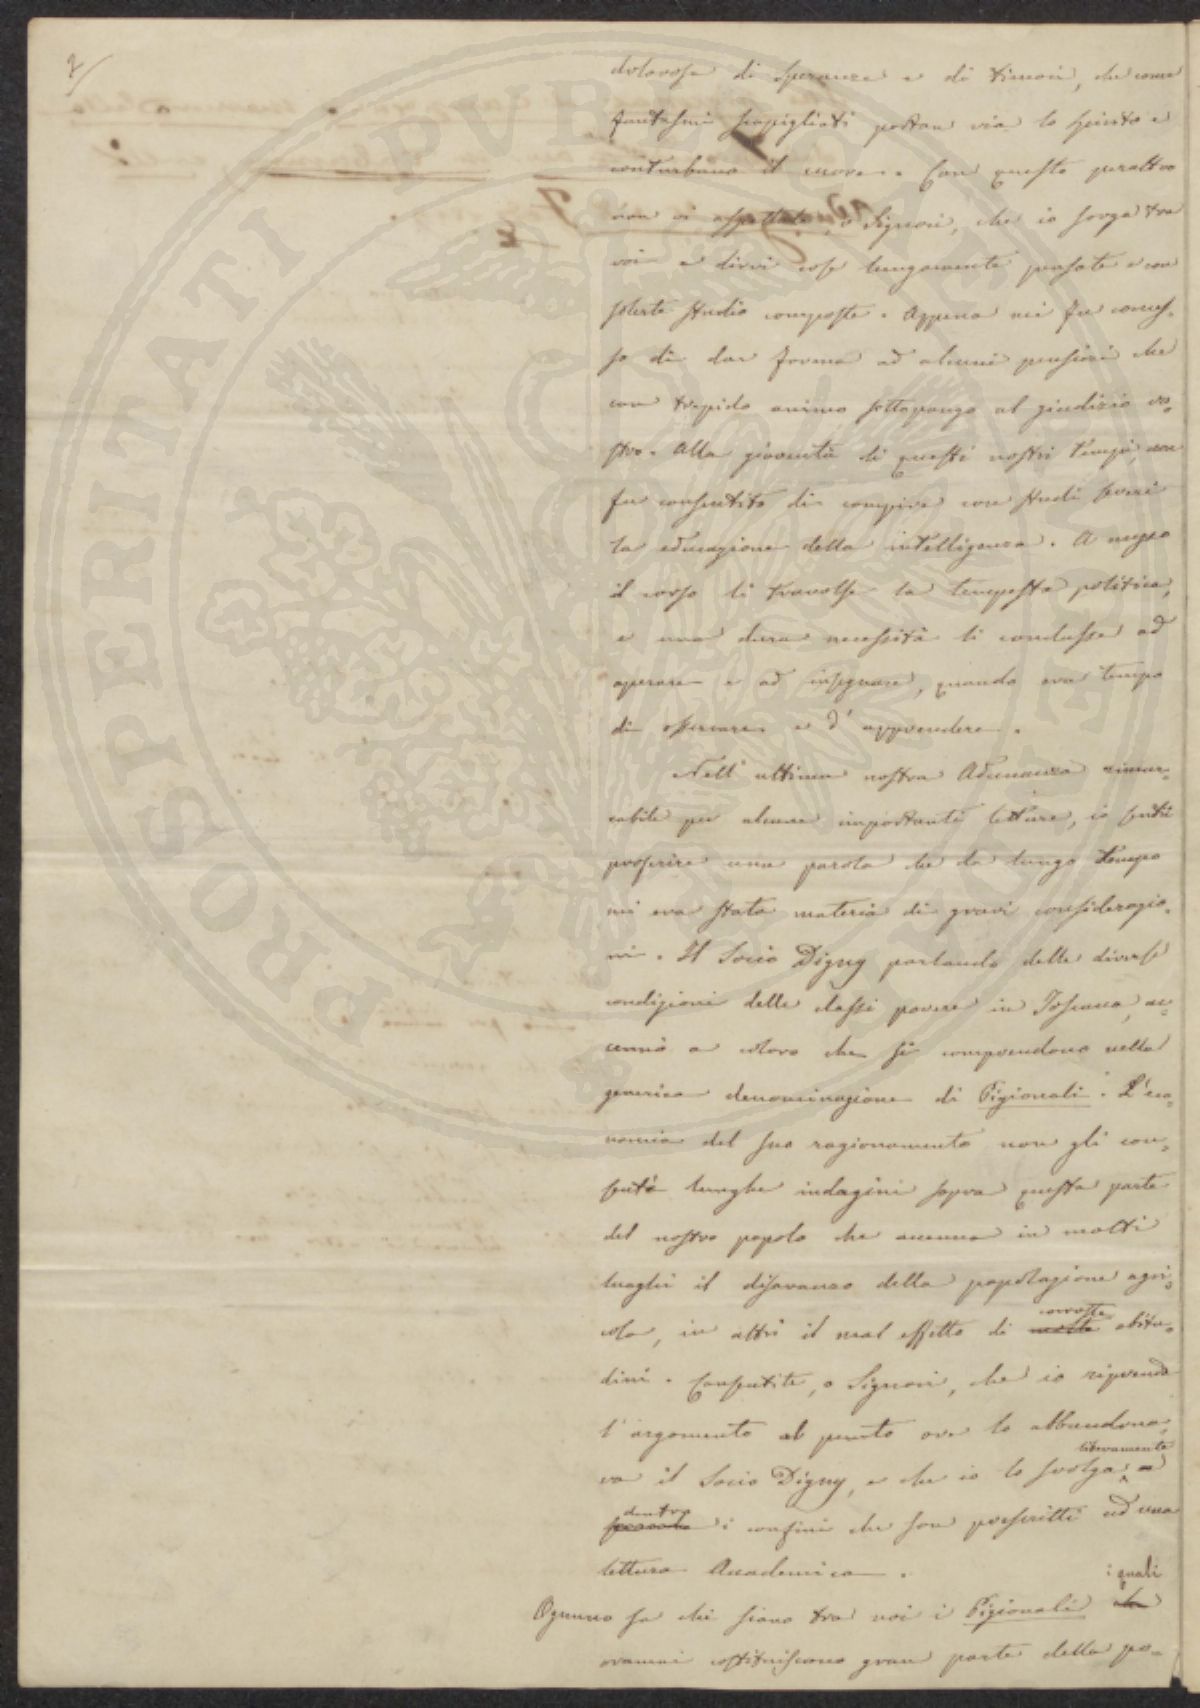 2/
dolorose di speranze e di timori, che come
fantasmi scapigliati portan via lo spirito e
conturbano il cuore. Con questo peraltro
non vi aspettate, o Signori, che io sorga tra
voi a dirvi cose lungamente pensate e con
solerte studio composte. Appena mi fu conces=
so di dar forma ad alcuni pensieri che
con trepido animo sottopongo al giudizio vo=
stro. Alla gioventù di questi nostri tempi, non
fu consentito di compire con studi severi
la educazione della intelligenza. A mezzo
il corso li travolse la tempesta politica,
e una dura necessità li condusse ad
operare e ad insegnare, quando era tempo
di osservare e d'apprendere.
Nell'ultima nostra Adunanza rimar=
cabile per alcune importanti letture, io sentii
proferire una parola che da lungo tempo
mi era stata materia di gravi considerazio=
ni. Il Socio Digny parlando delle diverse
condizioni delle classi povere in Toscana, ac=
cennò a coloro che si comprendono nella
generica denominazione di Pigionali. L'eco=
nomia del suo ragionamento non gli con=
sentì lunghe indagini sopra questa parte
del nostro popolo che accenna in molti
luoghi il disavanzo della popolazione agri=
cola, in altri il mal effetto di corrotte abitu=
dini. Consentite, o Signori, che io riprenda
l'argomento al punto ove lo abbandona=
va il Socio Digny, e che io lo svolga liberamente
dentro i confini che son prescritti ad una
lettura Accademica.
Ognuno sa chi siano tra noi i Pigionali i quali
oramai costituiscono gran parte della po=